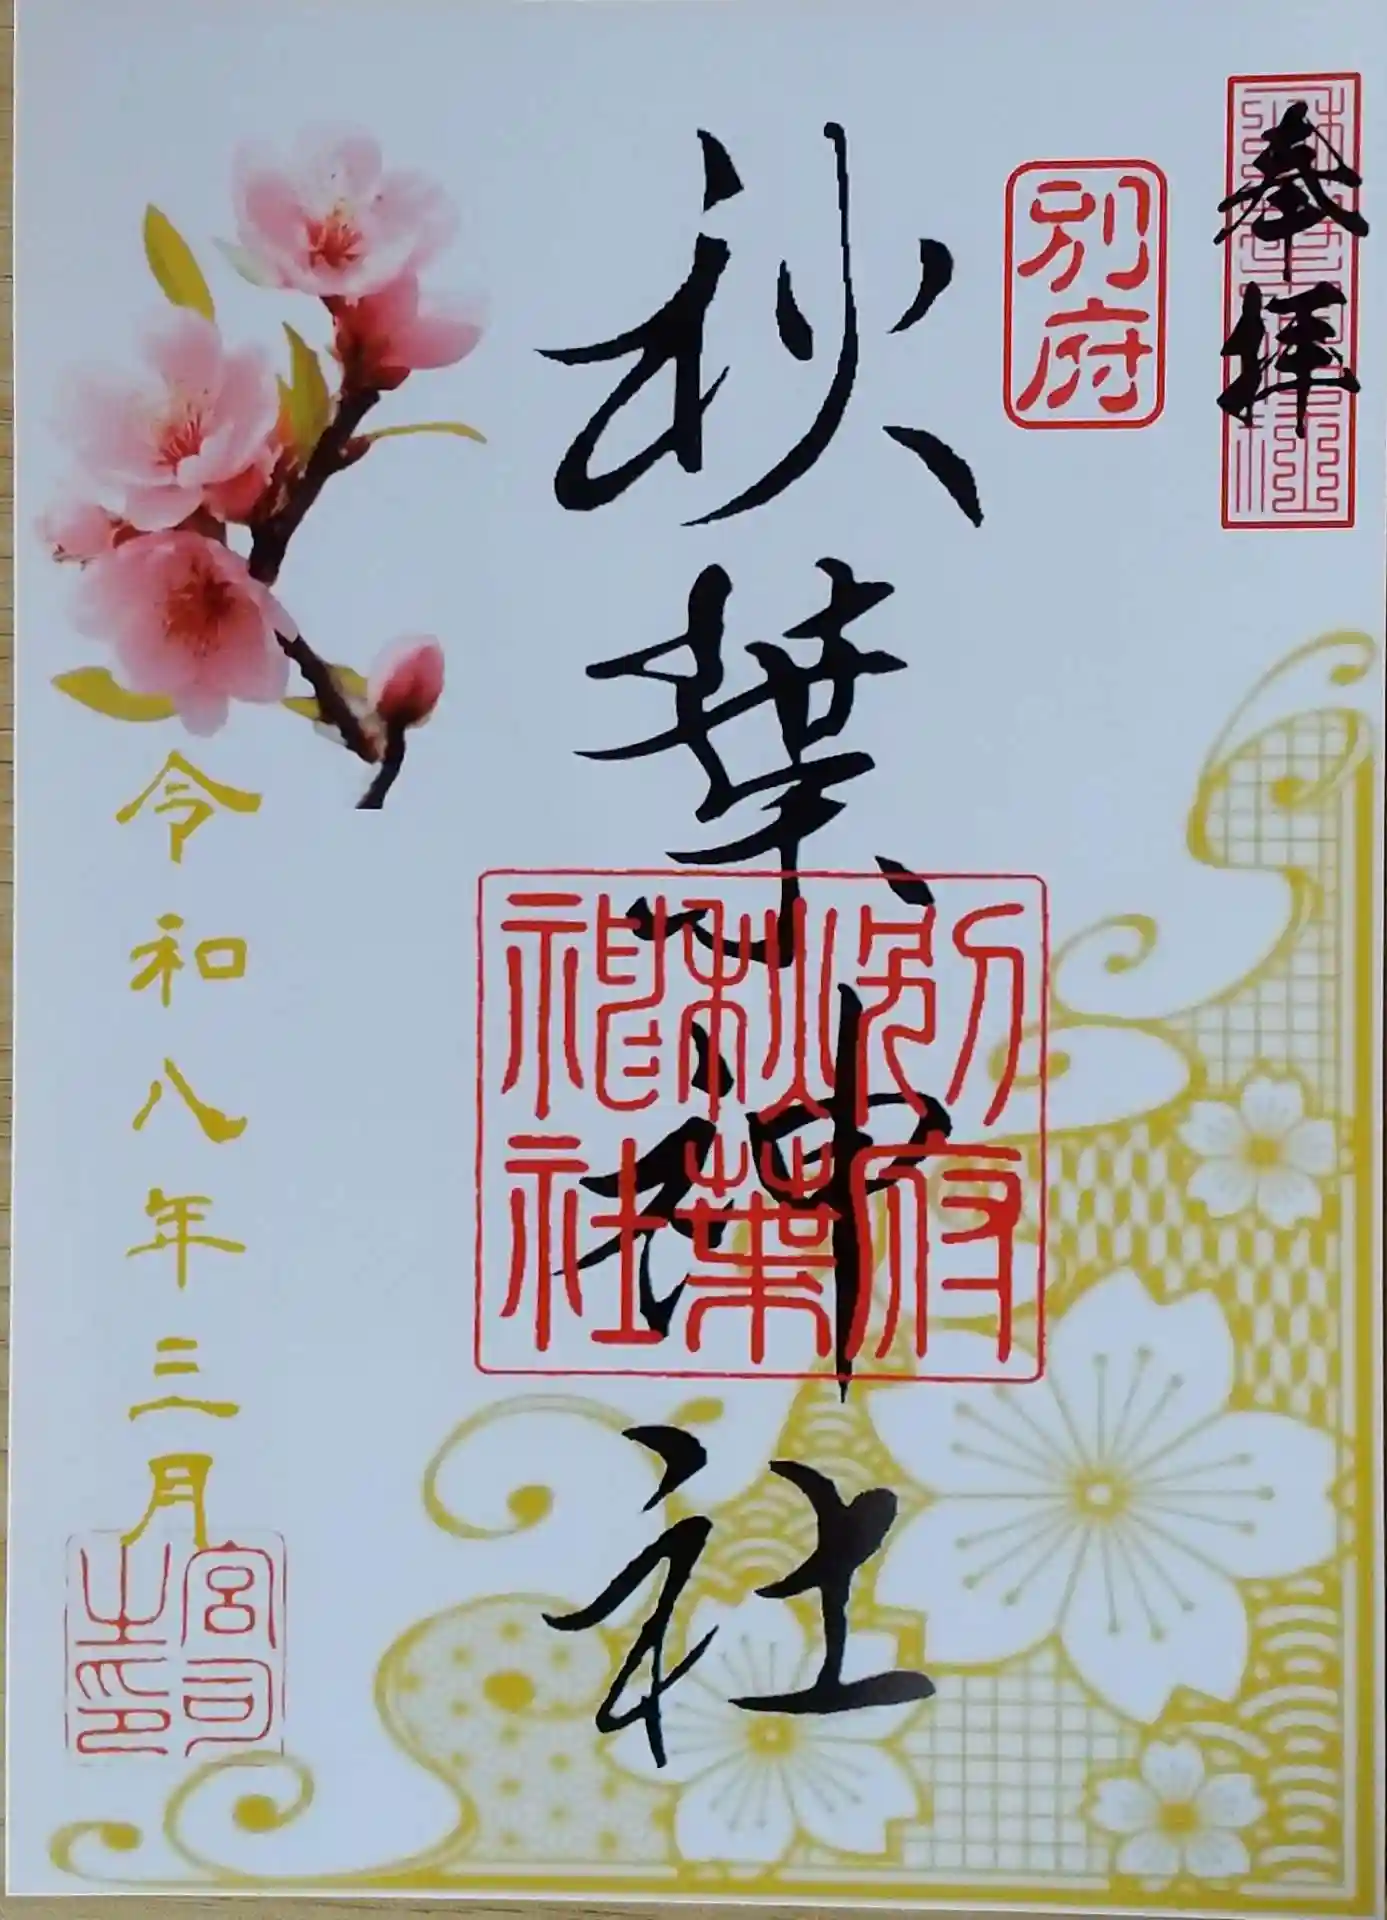 奉拝
別府
秋葉神社
別府
秋葉
神社
令和八年三月
宮司
之印